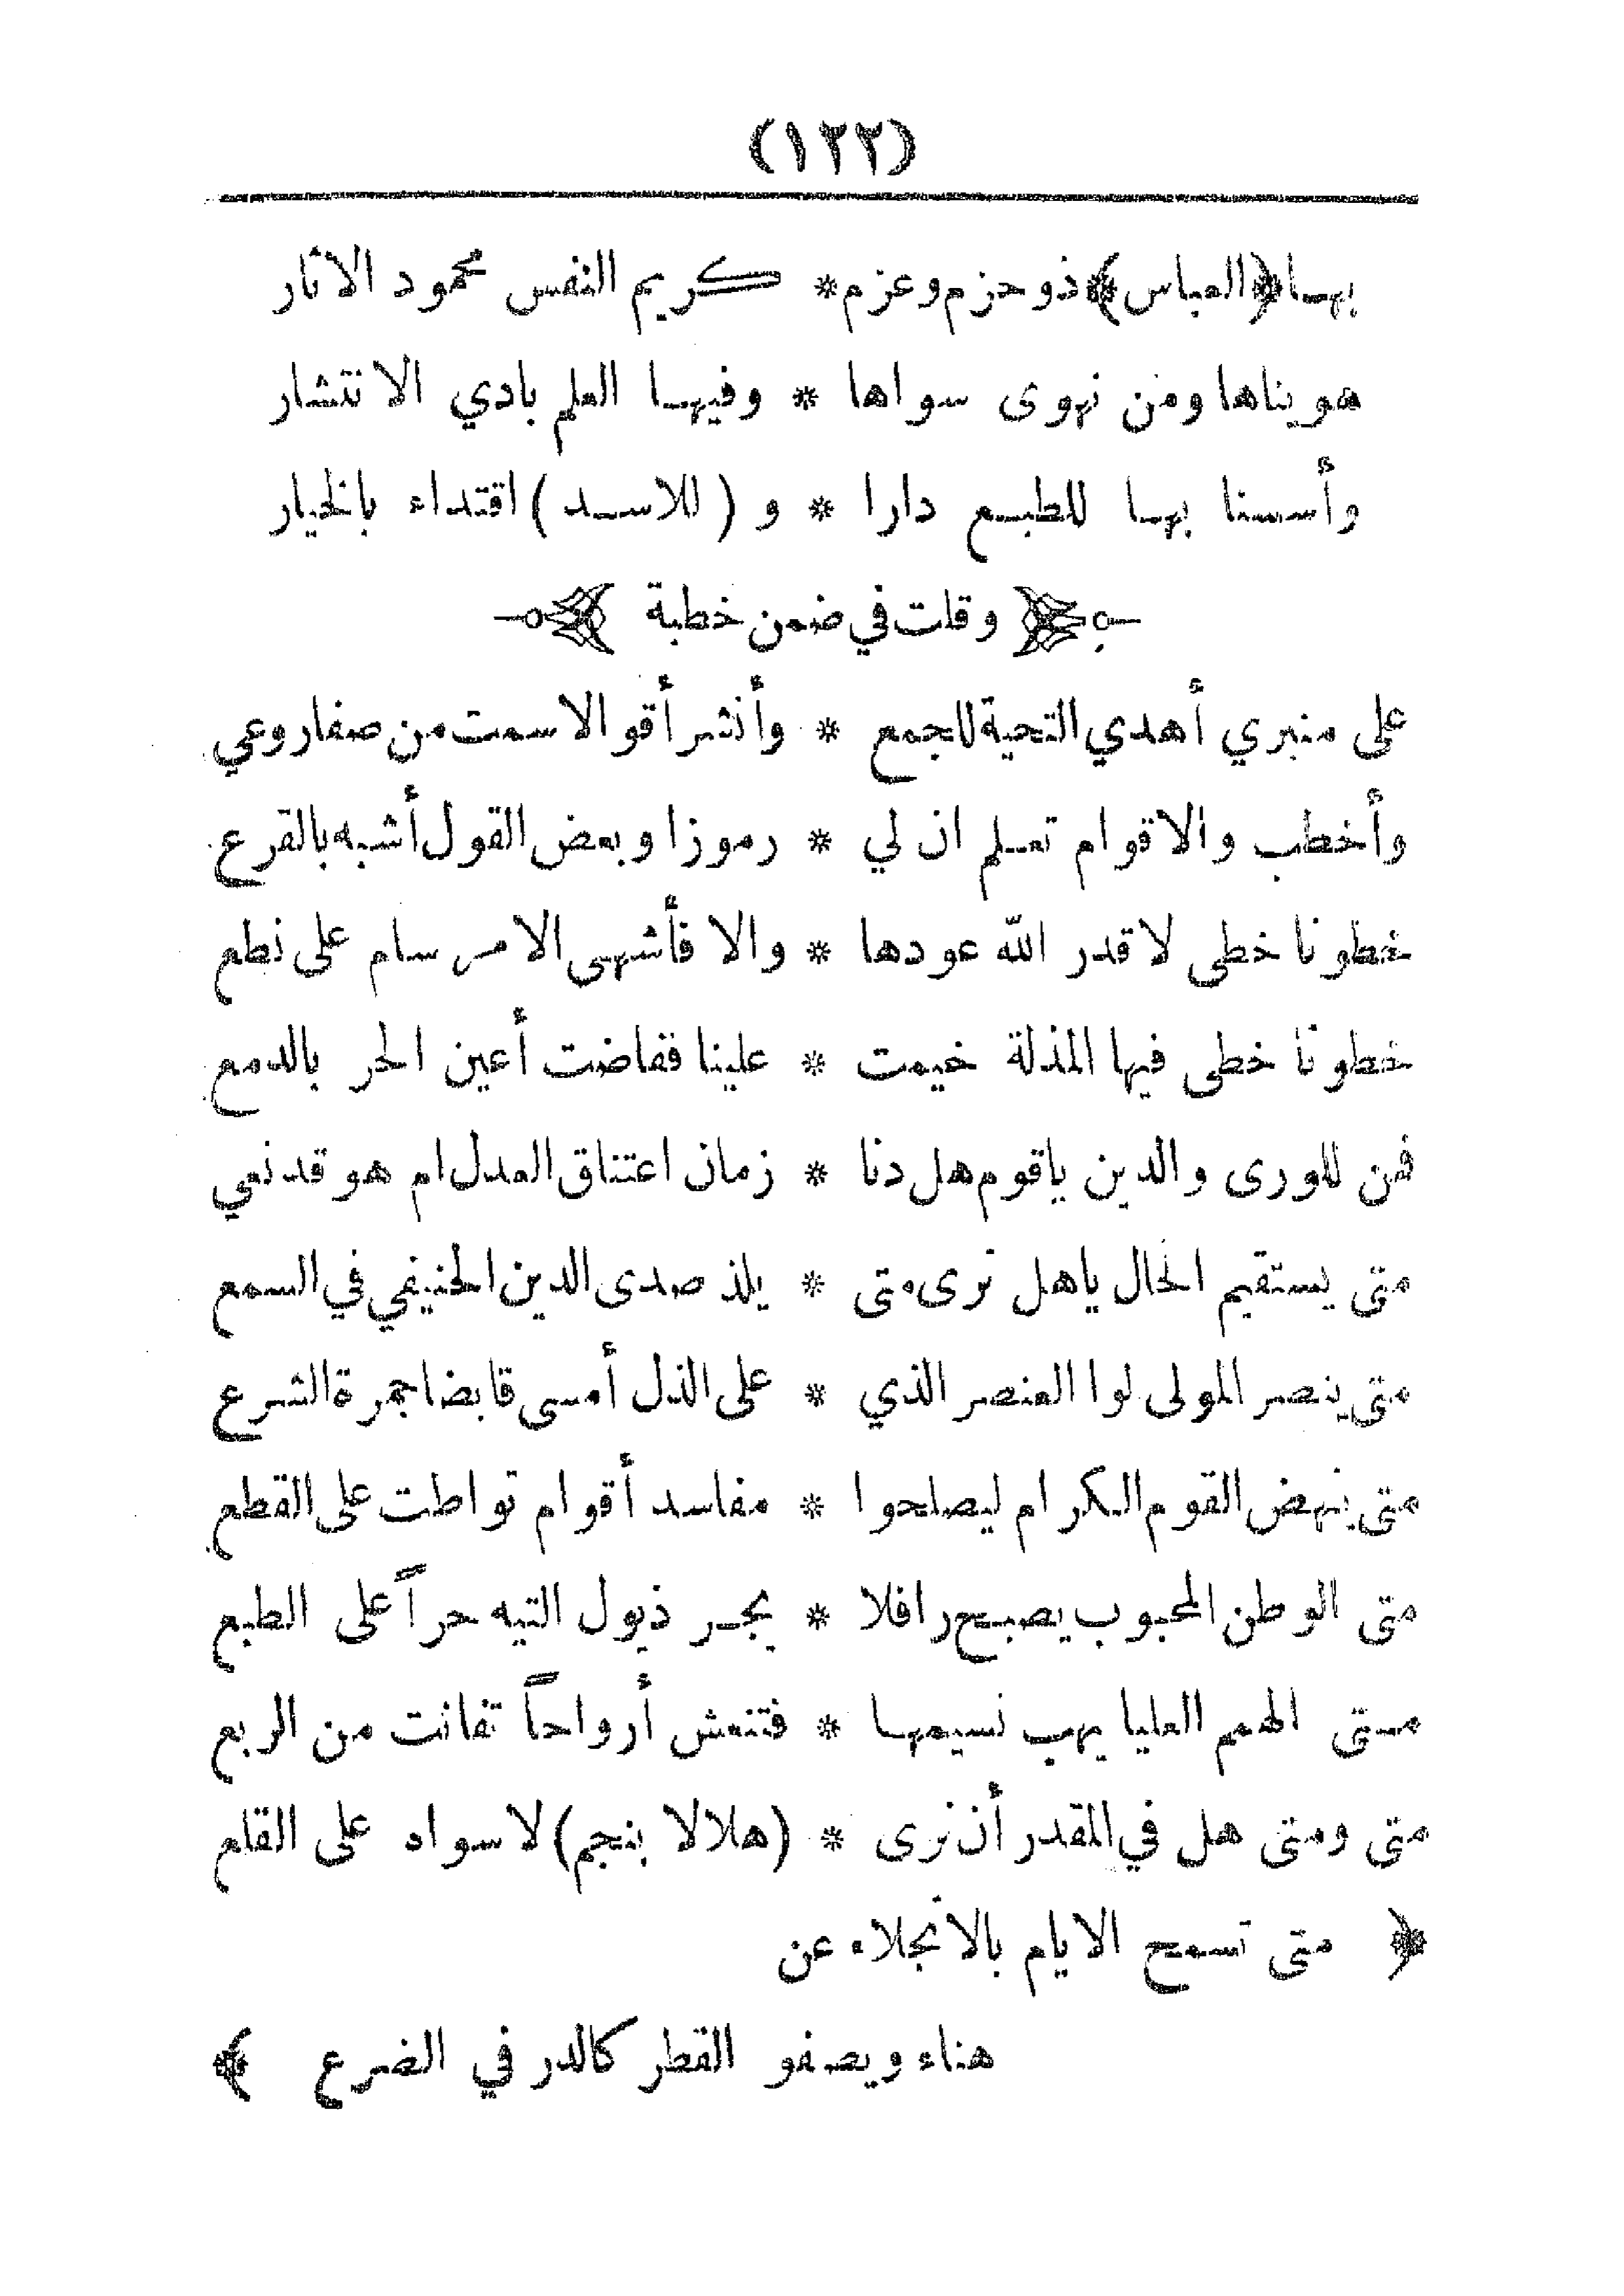 (١٢٢)
بهـا ﴿العباس﴾ ذو حزم وعزم * كريم النفس محمود الاثار
هويناها ومن نهوى سواها * وفيهـا العلم بادي الانتشار
وأسسنا بهـا للطبـع دارا * و ( للاسـد ) اقتداء بالخيار
وقلت في ضمن خطبة
على منبري أهدي التحية للجمع * وأنثر أقوالا سمت من صفا روعي
وأخطب والاقوام تعـلم ان لي * رموزا وبعض القول أشبه بالقرع
خطونا خطى لا قدر الله عودها * والا فأشهى الامر سام على نطع
خطونا خطى فيها المذلة خيمت * علينا ففاضت أعين الحر بالدمع
فمن للورى والدين ياقوم هل دنا * زمان اعتناق العدل ام هو قد نعي
متى يستقيم الحال ياهل ترى متى * يلذ صدى الدين الحنيفي في السمع
متى ينصر المولى لوا العنصر الذي * على الذل أمسى قابضا جمرة الشرع
متى ينهض القوم الكرام ليصلحوا * مفاسد أقوام تواطت على القطع
متى الوطن المحبوب يصبـح رافلا * يجـر ذيول التيه حراً على الطبع
مـتى الهمم العليا يهب نسيمهـا * فتنعش أرواحاً تفانت من الربع
متى ومتى هل في المقدر أن نرى * (هلالا بنجم) لا سواه على القلع
﴿ متى تسمح الايام بالانجلاء عن
هناء ويصفو القطر كالدر في الضرع ﴾